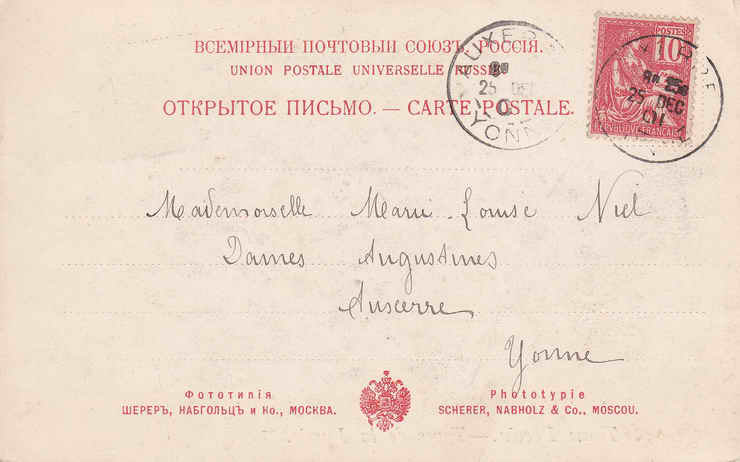 ВСЕМІРНЫЙ ПОЧТОВЫЙ СОЮЗЪ. РОССІЯ.
UNION POSTALE UNIVERSELLE RUSSIE
ОТКРЫТОЕ ПИСЬМО. — CARTE POSTALE.
AUXERRE
25 DEC
YONNE
POSTES
10
REPUBLIQUE FRANÇAISE
25 DEC
01
Mademoiselle Marie-Louise Niel
Dames Augustines
Auxerre
Yonne
Фототипія
ШЕРЕРЪ, НАБГОЛЬЦЪ и Ко., МОСКВА.
Phototypie
SCHERER, NABHOLZ & Co., MOSCOU.